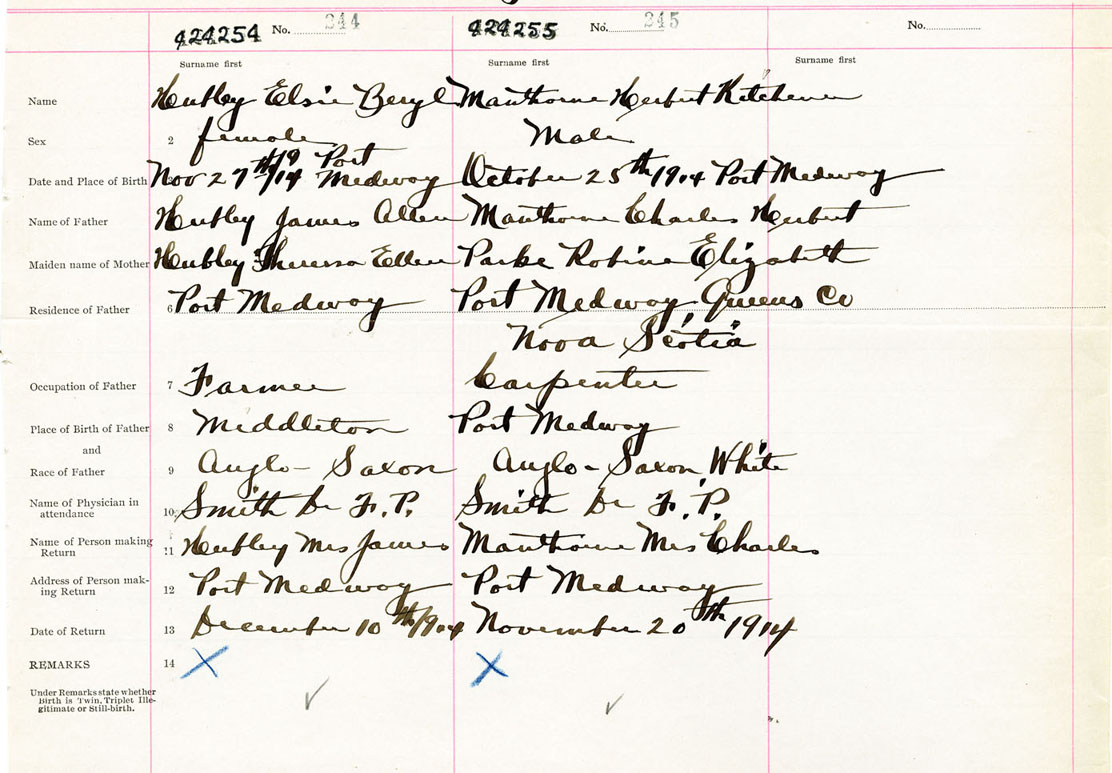 424254 No. 244 424255 No. 245 No.
Surname first Surname first Surname first
Name Hubley Elsie Beryl Manthorne Herbert Kitchener
Sex 2 female Male
Date and Place of Birth Nov 27th/1914 Port Medway October 25th 1914 Port Medway
Name of Father Hubley James Allen Manthorne Charles Herbert
Maiden name of Mother Hubley Theresa Ellen Parke Robina Elizabeth
Residence of Father 6 Port Medway Port Medway, Queens Co
Nova Scotia
Occupation of Father 7 Farmer Carpenter
Place of Birth of Father 8 Middleton Port Medway
and
Race of Father 9 Anglo-Saxon Anglo-Saxon, White
Name of Physician in
attendance 10 Smith Dr F. P. Smith Dr F. P.
Name of Person making
Return 11 Hubley Mrs James Manthorne Mrs Charles
Address of Person mak-
ing Return 12 Port Medway Port Medway
Date of Return 13 December 10th/1914 November 20th 1914
REMARKS 14 X X
Under Remarks state whether
Birth is Twin, Triplet Ille-
gitimate or Still-birth.